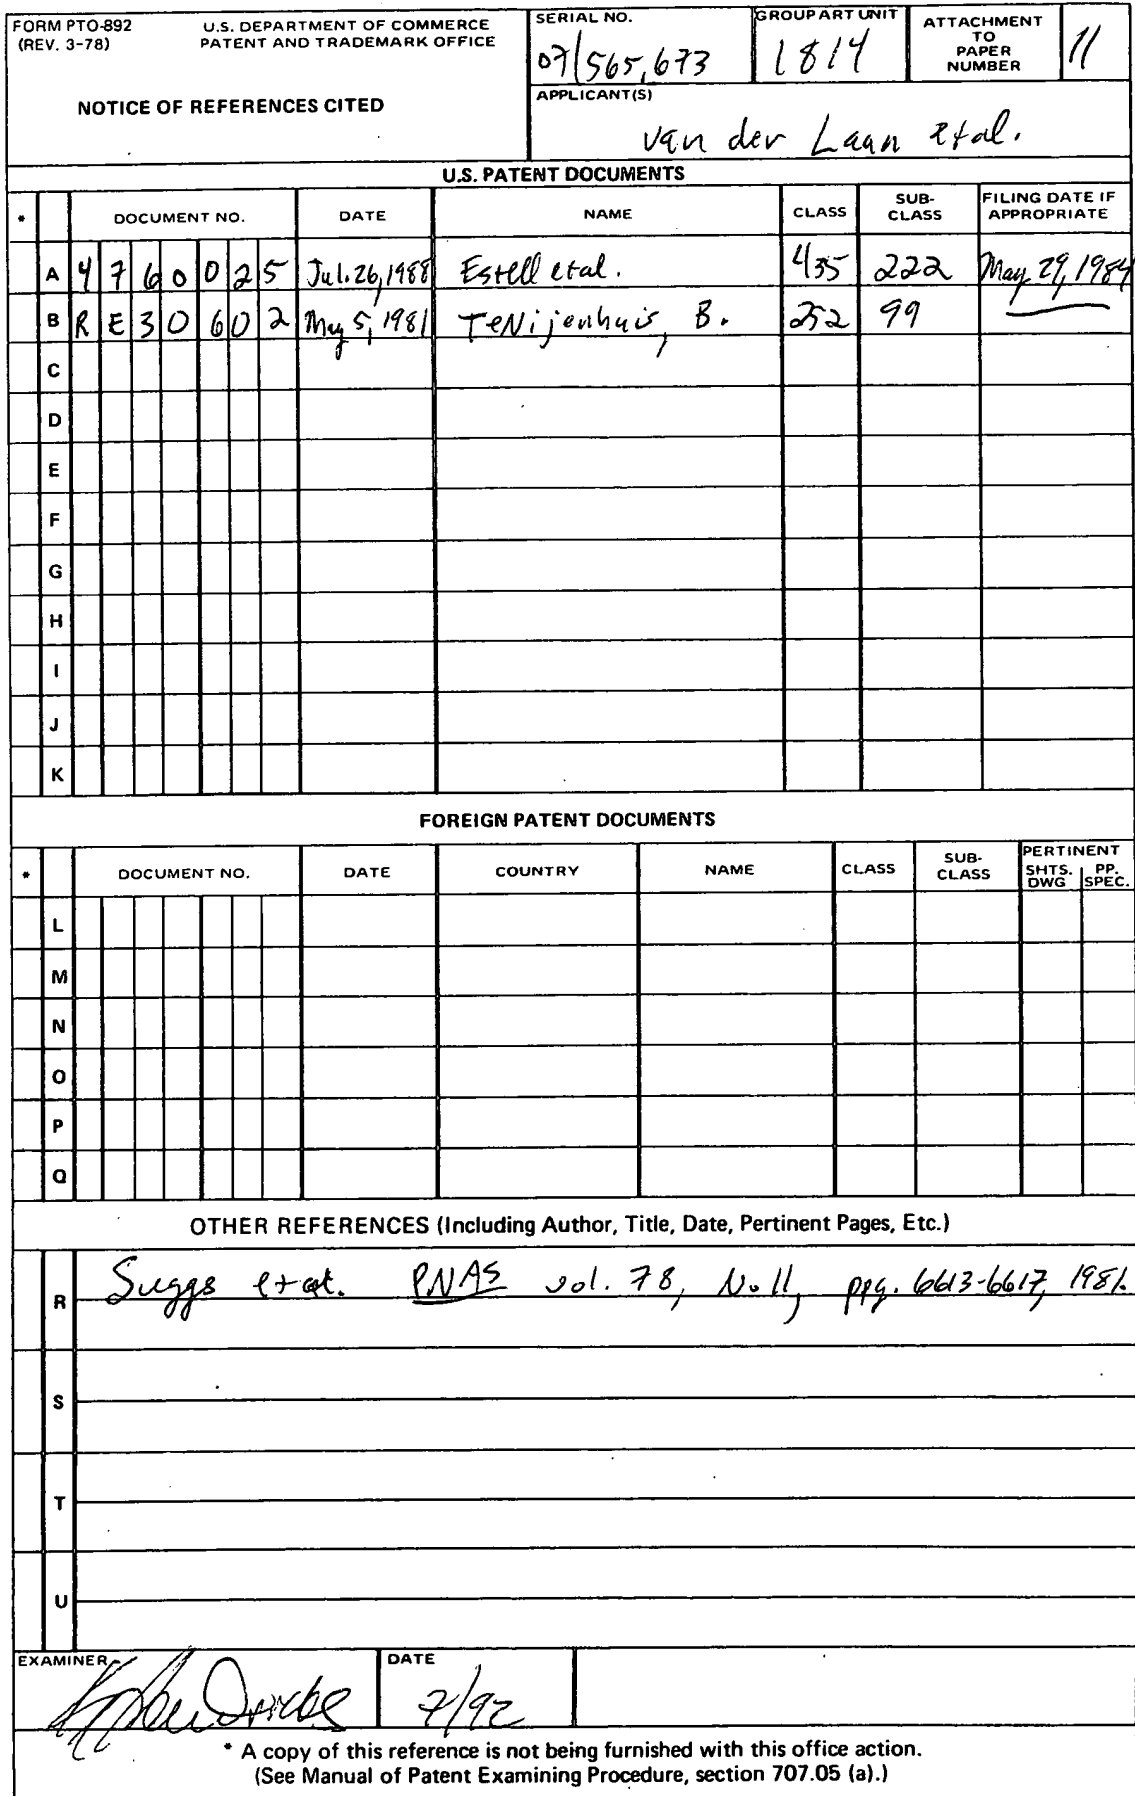 FORM PTO-892 U.S. DEPARTMENT OF COMMERCE
(REV. 3-78) PATENT AND TRADEMARK OFFICE
NOTICE OF REFERENCES CITED
SERIAL NO.
07/565,673
GROUP ART UNIT
1814
ATTACHMENT
TO
PAPER
NUMBER
11
APPLICANT(S)
van der Laan et al.
U.S. PATENT DOCUMENTS
* DOCUMENT NO. DATE NAME CLASS SUB-CLASS FILING DATE IF APPROPRIATE
A 4 7 6 0 0 2 5 Jul. 26, 1988 Estell et al. 435 222 May 29, 1984
B R E 3 0 6 0 2 May 5, 1981 TeNijenhuis, B. 252 99
C
D
E
F
G
H
I
J
K
FOREIGN PATENT DOCUMENTS
* DOCUMENT NO. DATE COUNTRY NAME CLASS SUB-CLASS PERTINENT SHTS. DWG PP. SPEC.
L
M
N
O
P
Q
OTHER REFERENCES (Including Author, Title, Date, Pertinent Pages, Etc.)
R Suggs et al. PNAS vol. 78, No. 11, ppg. 6613-6617, 1981.
S
T
U
EXAMINER
DATE
7/92
* A copy of this reference is not being furnished with this office action.
(See Manual of Patent Examining Procedure, section 707.05 (a).)